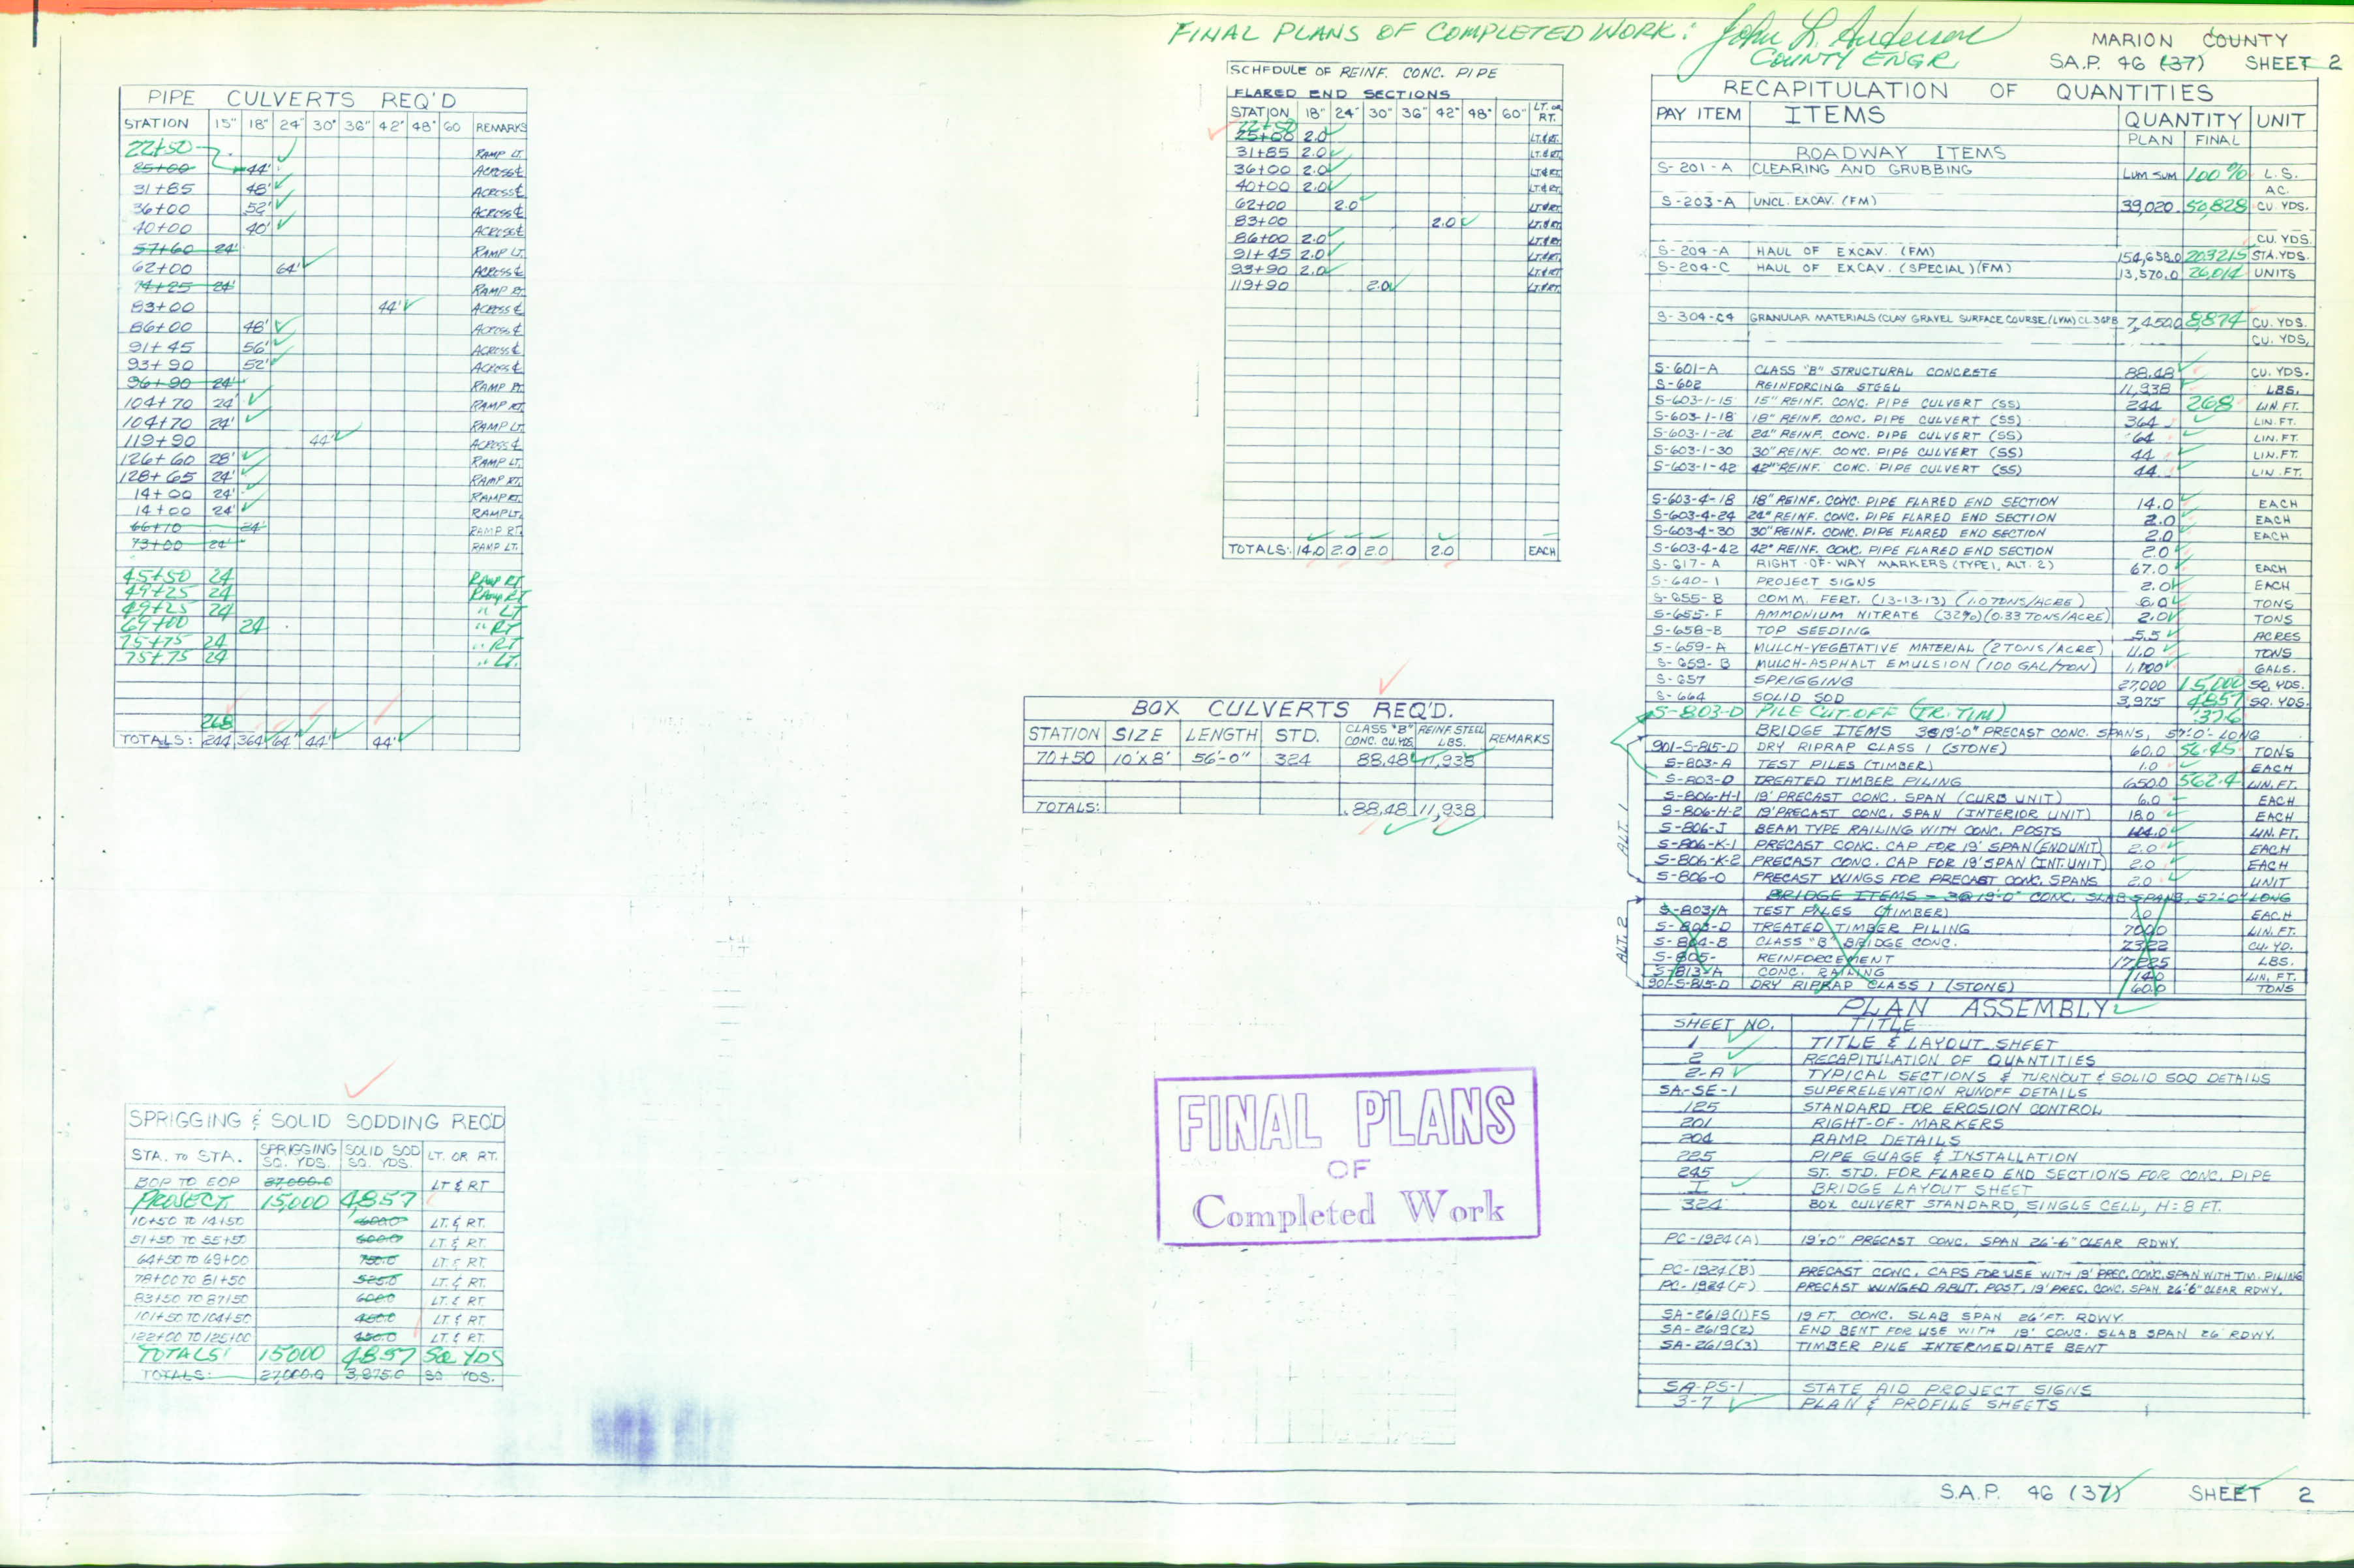 FINAL PLANS OF COMPLETED WORK: John L. Anderson
COUNTY ENGR
MARION COUNTY
S.A.P. 46 (37) SHEET 2
PIPE CULVERTS REQ'D
STATION 15" 18" 24" 30" 36" 42" 48" 60 REMARKS
22+50 RAMP LT.
25+00 44' ACROSS ℄
31+85 48' ACROSS ℄
36+00 52' ACROSS ℄
40+00 40' ACROSS ℄
57+60 24' RAMP LT.
62+00 64' ACROSS ℄
74+25 24' RAMP RT.
83+00 44' ACROSS ℄
86+00 48' ACROSS ℄
91+45 56' ACROSS ℄
93+90 52' ACROSS ℄
96+90 24' RAMP RT.
104+70 24' RAMP RT.
104+70 24' RAMP LT.
119+90 44' ACROSS ℄
126+60 28' RAMP LT.
128+65 24' RAMP RT.
14+00 24' RAMP RT.
14+00 24' RAMP LT.
66+10 24' RAMP RT.
73+00 24' RAMP LT.
45+50 24 RAMP RT
49+25 24 RAMP RT
49+25 24 " LT
69+00 24 " RT
75+75 24 " RT
75+75 24 " LT.
268
TOTALS: 244 364 64' 44' 44'
SCHEDULE OF REINF. CONC. PIPE
FLARED END SECTIONS
STATION 18" 24" 30" 36" 42" 48" 60" LT. OR RT.
22+50
25+00 2.0 LT.&RT.
31+85 2.0 LT.&RT.
36+00 2.0 LT.&RT.
40+00 2.0 LT.&RT.
62+00 2.0 LT.&RT.
83+00 2.0 LT.&RT.
86+00 2.0 LT.&RT.
91+45 2.0 LT.&RT.
93+90 2.0 LT.&RT.
119+90 2.0 LT.&RT.
TOTALS: 14.0 2.0 2.0 2.0 EACH
BOX CULVERTS REQ'D.
STATION SIZE LENGTH STD. CLASS "B" CONC. CU.YDS. REINF. STEEL LBS. REMARKS
70+50 10'X8' 56'-0" 324 88.48 11,938
TOTALS: 88.48 11,938
SPRIGGING & SOLID SODDING REQ'D
STA. TO STA. SPRIGGING SQ. YDS. SOLID SOD SQ. YDS. LT. OR RT.
BOP TO EOP 27,000.0 LT & RT
PROJECT 15,000 4857
10+50 TO 14+50 600.0 LT. & RT.
51+50 TO 55+50 600.0 LT. & RT.
64+50 TO 69+00 750.0 LT. & RT.
78+00 TO 81+50 525.0 LT. & RT.
83+50 TO 87+50 600.0 LT. & RT.
101+50 TO 104+50 450.0 LT. & RT.
122+00 TO 125+00 450.0 LT. & RT.
TOTALS: 15000 4857 SQ YDS
TOTALS: 27,000.0 3,975.0 SQ. YDS.
FINAL PLANS
OF
Completed Work
RECAPITULATION OF QUANTITIES
PAY ITEM ITEMS QUANTITY UNIT
PLAN FINAL
ROADWAY ITEMS
S-201-A CLEARING AND GRUBBING LUM SUM 100% L.S.
AC.
S-203-A UNCL. EXCAV. (FM) 39,020. 50,828 CU. YDS.
CU. YDS.
S-204-A HAUL OF EXCAV. (FM) 154,658.0 203215 STA. YDS.
S-204-C HAUL OF EXCAV. (SPECIAL)(FM) 13,570.0 26,014 UNITS
S-304-C4 GRANULAR MATERIALS (CLAY GRAVEL SURFACE COURSE (LVM) CL. 3 GP B 7,450.0 8,874 CU. YDS.
CU. YDS.
S-601-A CLASS "B" STRUCTURAL CONCRETE 88.48 CU. YDS.
S-602 REINFORCING STEEL 11,938 LBS.
S-603-1-15 15" REINF. CONC. PIPE CULVERT (SS) 244 268 LIN. FT.
S-603-1-18 18" REINF. CONC. PIPE CULVERT (SS) 364 LIN. FT.
S-603-1-24 24" REINF. CONC. PIPE CULVERT (SS) 64 LIN. FT.
S-603-1-30 30" REINF. CONC. PIPE CULVERT (SS) 44 LIN. FT.
S-603-1-42 42" REINF. CONC. PIPE CULVERT (SS) 44 LIN. FT.
S-603-4-18 18" REINF. CONC. PIPE FLARED END SECTION 14.0 EACH
S-603-4-24 24" REINF. CONC. PIPE FLARED END SECTION 2.0 EACH
S-603-4-30 30" REINF. CONC. PIPE FLARED END SECTION 2.0 EACH
S-603-4-42 42" REINF. CONC. PIPE FLARED END SECTION 2.0
S-617-A RIGHT-OF-WAY MARKERS (TYPE 1, ALT. 2) 67.0 EACH
S-640-1 PROJECT SIGNS 2.0 EACH
S-655-B COMM. FERT. (13-13-13) (1.0 TONS/ACRE) 6.0 TONS
S-655-F AMMONIUM NITRATE (32%) (0.33 TONS/ACRE) 2.0 TONS
S-658-B TOP SEEDING 5.5 ACRES
S-659-A MULCH-VEGETATIVE MATERIAL (2 TONS/ACRE) 11.0 TONS
S-659-B MULCH-ASPHALT EMULSION (100 GAL/TON) 1,100 GALS.
S-657 SPRIGGING 27,000 15,000 SQ. YDS.
S-664 SOLID SOD 3,975 4857 SQ. YDS.
S-803-D PILE CUT-OFF (TR. TIM) 37.6
BRIDGE ITEMS 3@19'-0" PRECAST CONC. SPANS, 57'-0"- LONG
ALT. 1
901-S-815-D DRY RIPRAP CLASS 1 (STONE) 60.0 56.45 TONS
S-803-A TEST PILES (TIMBER) 1.0 EACH
S-803-D TREATED TIMBER PILING 650.0 562.4 LIN. FT.
S-806-H-1 19' PRECAST CONC. SPAN (CURB UNIT) 6.0 EACH
S-806-H-2 19' PRECAST CONC. SPAN (INTERIOR UNIT) 18.0 EACH
S-806-J BEAM TYPE RAILING WITH CONC. POSTS LIN. FT.
S-806-K-1 PRECAST CONC. CAP FOR 19' SPAN (END UNIT) 2.0 EACH
S-806-K-2 PRECAST CONC. CAP FOR 19' SPAN (INT. UNIT) 2.0 EACH
S-806-O PRECAST WINGS FOR PRECAST CONC. SPANS 2.0 UNIT
BRIDGE ITEMS - 3@19'-0" CONC. SLAB SPANS, 57'-0" LONG
ALT. 2
S-803-A TEST PILES (TIMBER) 1.0 EACH
S-803-D TREATED TIMBER PILING 700.0 LIN. FT.
S-804-B CLASS "B" BRIDGE CONC. 73.22 CU. YD.
S-805- REINFORCEMENT LBS.
S-813-A CONC. RAILING 114.0 LIN. FT.
901-S-815-D DRY RIPRAP CLASS 1 (STONE) 60.0 TONS
PLAN ASSEMBLY
SHEET NO. TITLE
1 TITLE & LAYOUT SHEET
2 RECAPITULATION OF QUANTITIES
2-A TYPICAL SECTIONS & TURNOUT & SOLID SOD DETAILS
SA-SE-1 SUPERELEVATION RUNOFF DETAILS
125 STANDARD FOR EROSION CONTROL
201 RIGHT-OF- MARKERS
204 RAMP DETAILS
225 PIPE GUAGE & INSTALLATION
245 ST. STD. FOR FLARED END SECTIONS FOR CONC. PIPE
I BRIDGE LAYOUT SHEET
324 BOX CULVERT STANDARD, SINGLE CELL, H=8 FT.
PC-1924(A) 19'-0" PRECAST CONC. SPAN 26'-6" CLEAR RDWY.
PC-1924(B) PRECAST CONC. CAPS FOR USE WITH 19' PREC. CONC. SPAN WITH TIM. PILING
PC-1924(F) PRECAST WINGED ABUT. POST, 19' PREC. CONC. SPAN 26'-6" CLEAR RDWY.
SA-2619(1)FS 19 FT. CONC. SLAB SPAN 26' FT. RDWY.
SA-2619(2) END BENT FOR USE WITH 19' CONC. SLAB SPAN 26' RDWY.
SA-2619(3) TIMBER PILE INTERMEDIATE BENT
SA-PS-1 STATE AID PROJECT SIGNS
3-7 PLAN & PROFILE SHEETS
S.A.P. 46 (37) SHEET 2